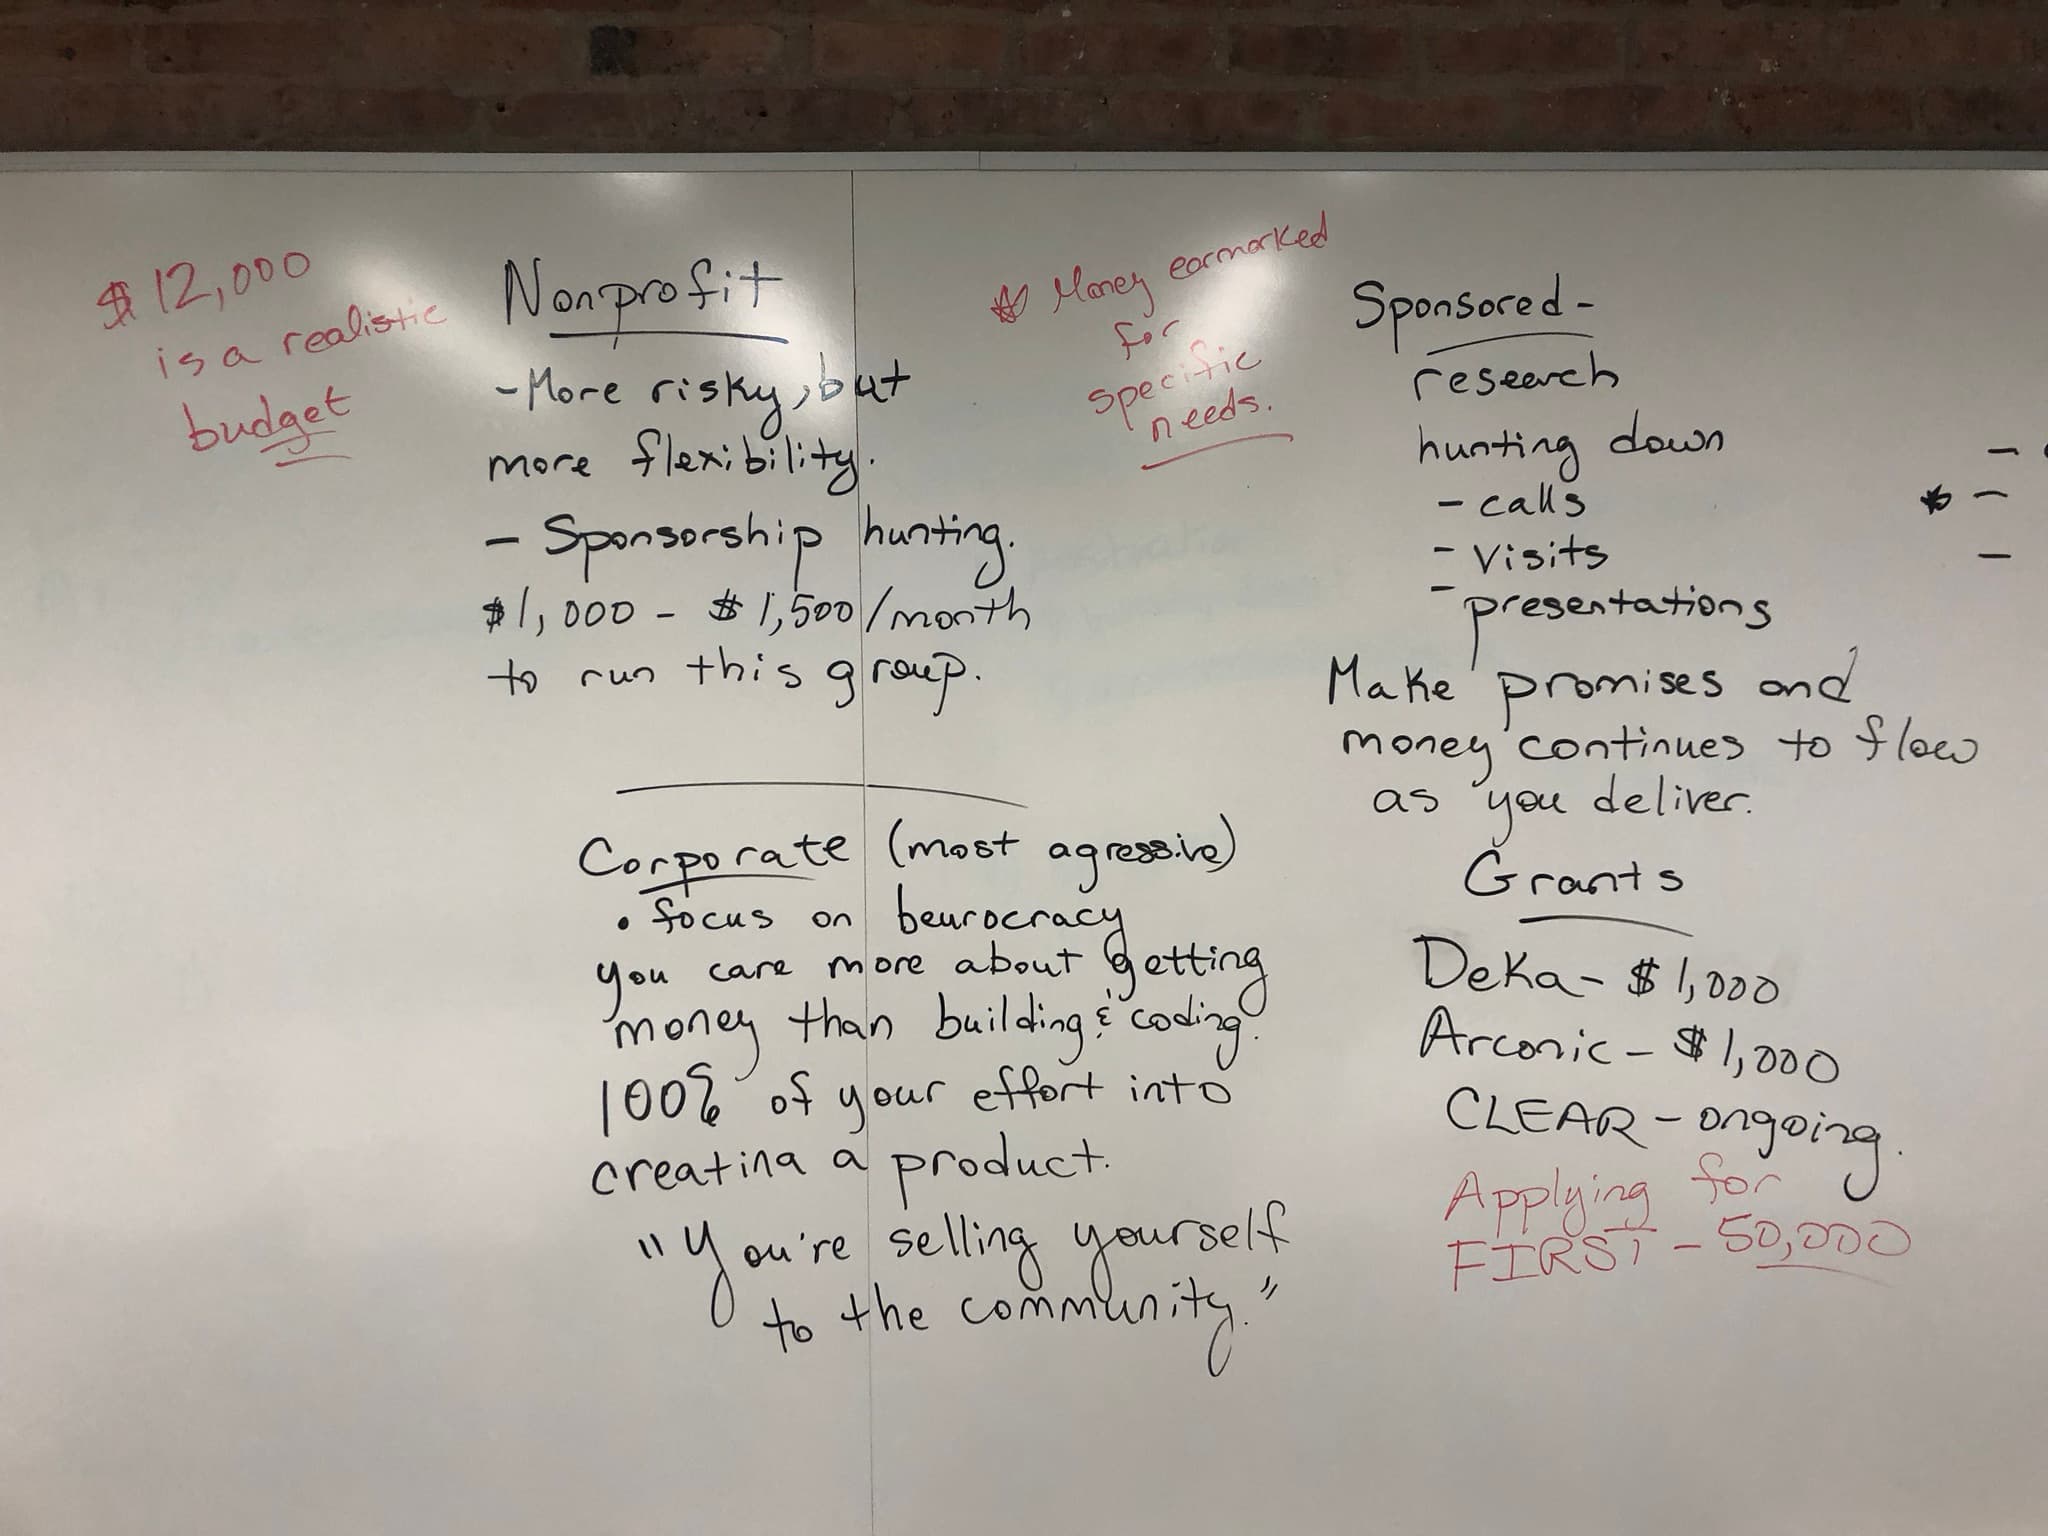 $12,000
is a realistic
budget
Nonprofit
- More risky, but
more flexibility.
- Sponsorship hunting.
$1,000 - $1,500/month
to run this group.
Corporate (most agressive)
• focus on beurocracy
you care more about getting
money than building & coding.
100% of your effort into
creating a product.
"You're selling yourself
to the community."
Money earmarked
for
specific
needs.
Sponsored -
research
hunting down
- calls
- visits
- presentations
Make promises and
money continues to flow
as you deliver.
Grants
Deka - $1,000
Arconic - $1,000
CLEAR - ongoing.
Applying for
FIRST - 50,000